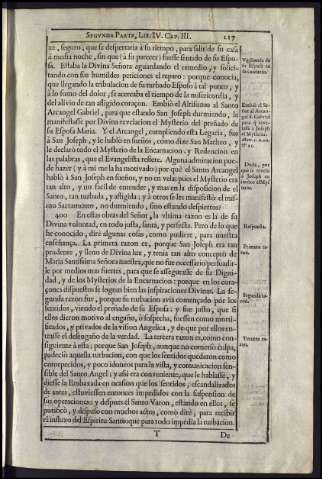 SEGVNDA PARTE, LIB. IV. CAP. III. 217
ra, seguro, que se despertaria à su tiempo, para salir de su casa
à media noche, sin que (à su parecer) fuesse sentido de su Espo-
sa. Estaba la Divina Señora aguardando el remedio, y solici-
tando con sus humildes peticiones el reparo: porque conocia,
que llegando la tribulacion de su turbado Esposo à tal punto, y
à lo sumo del dolor, se acercaba el tiempo de la misericordia, y
del alivio de tan afligido coraçon. Embiò el Altissimo al Santo
Arcangel Gabriel, para que estando San Joseph durmiendo, le
manifestasse por Divina revelacion el Mysterio del preñado de
su Esposa Maria. Y el Arcangel, cumpliendo esta Legacia, fue
à San Joseph, y le hablò en sueños, como dize San Matheo, y
le declarò todo el Mysterio de la Encarnacion, y Redencion en
las palabras, que el Evangelista refiere. Alguna admiracion pue-
de hazer (y à mi me la ha motivado) por què el Santo Arcangel
hablò à San Joseph en sueños, y no en vela; pues el Mysterio era
tan alto, y no facil de entender, y mas en la disposicion de el
Santo, tan turbada, y afligida; y à otros se les manifestò el mis-
mo Sacramento, no durmiendo, sino estando despiertos.
400 En estas obras del Señor, la vltima razon es la de su
Divina voluntad, en todo justa, santa, y perfecta. Pero de lo que
he conocido, dirè algunas cosas, como pudiere, para nuestra
enseñança. La primera razon es, porque San Joseph era tan
prudente, y lleno de Divina luz, y tenia tan alto concepto de
Maria Santissima Señora nuestra, que no fue necessario persuadir-
le por medios mas fuertes, para que se assegurasse de su Digni-
dad, y de los Mysterios de la Encarnacion: porque en los cora-
çones dispuestos se logran bien las inspiraciones Divinas. La se-
gunda razon fue, porque su turbacion avia començado por los
sentidos, viendo el preñado de su Esposa; y fue justo, que si
ellos dieron motivo al engaño, ò sospecha, fuessen como morti-
ficados, y privados de la vision Angelica, y de que por ellos en-
trasse el desengaño de la verdad. La tercera razon es, como con-
siguiente à esta; porque San Joseph, aunque no cometiò culpa,
padeciò aquella turbacion, con que los sentidos quedaron como
entorpecidos, y poco idoneos para la vista, y comunicacion sen-
sible del Santo Angel; y assi era conveniente, que le hablasse, y
diesse la Embaxada en ocasion que los sentidos, escandalizados
de antes, estuviessen entonces impedidos con la suspension de
sus operaciones; y despues el Santo Varon, estando en ellos, se
purificò, y dispuso con muchos actos, como dirè, para recibir
el influxo del Espiritu Santo; que para todo impedia la turbacion.
T De
Respuesta.
Primera ra-
zon.
Segunda ra-
zon.
Tercera ra-
zon.